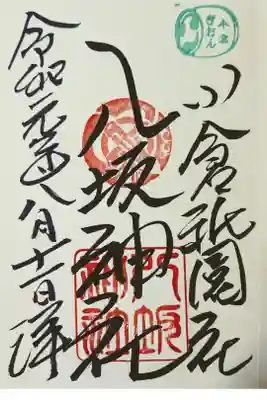 小倉祇園社
八坂神社
令和元年八月十一日拝
小倉
ぎおん
八坂神社